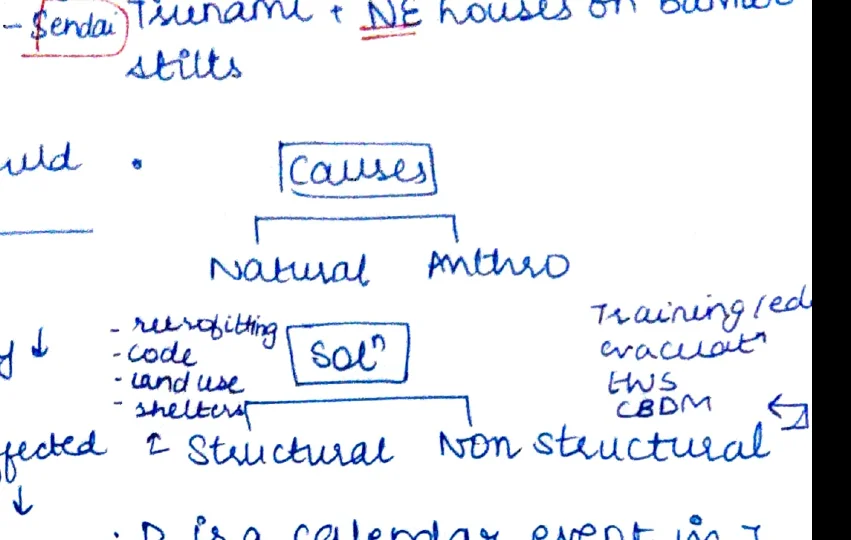 - Sendai Tsunami + NE houses on
stilts
Causes
Natural Anthro
- retrofitting
- code
- land use
- shelters
Solⁿ
Training/ed
evacuatⁿ
EWS
CBDM
ffected Structural Non structural
. D is a calendar event in